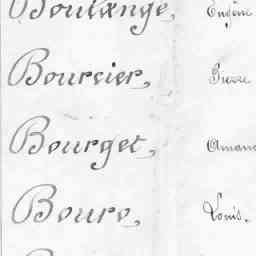 Boulange, Eugène
Boursier, Pierre
Bourget, Amand
Bouro, Louis.